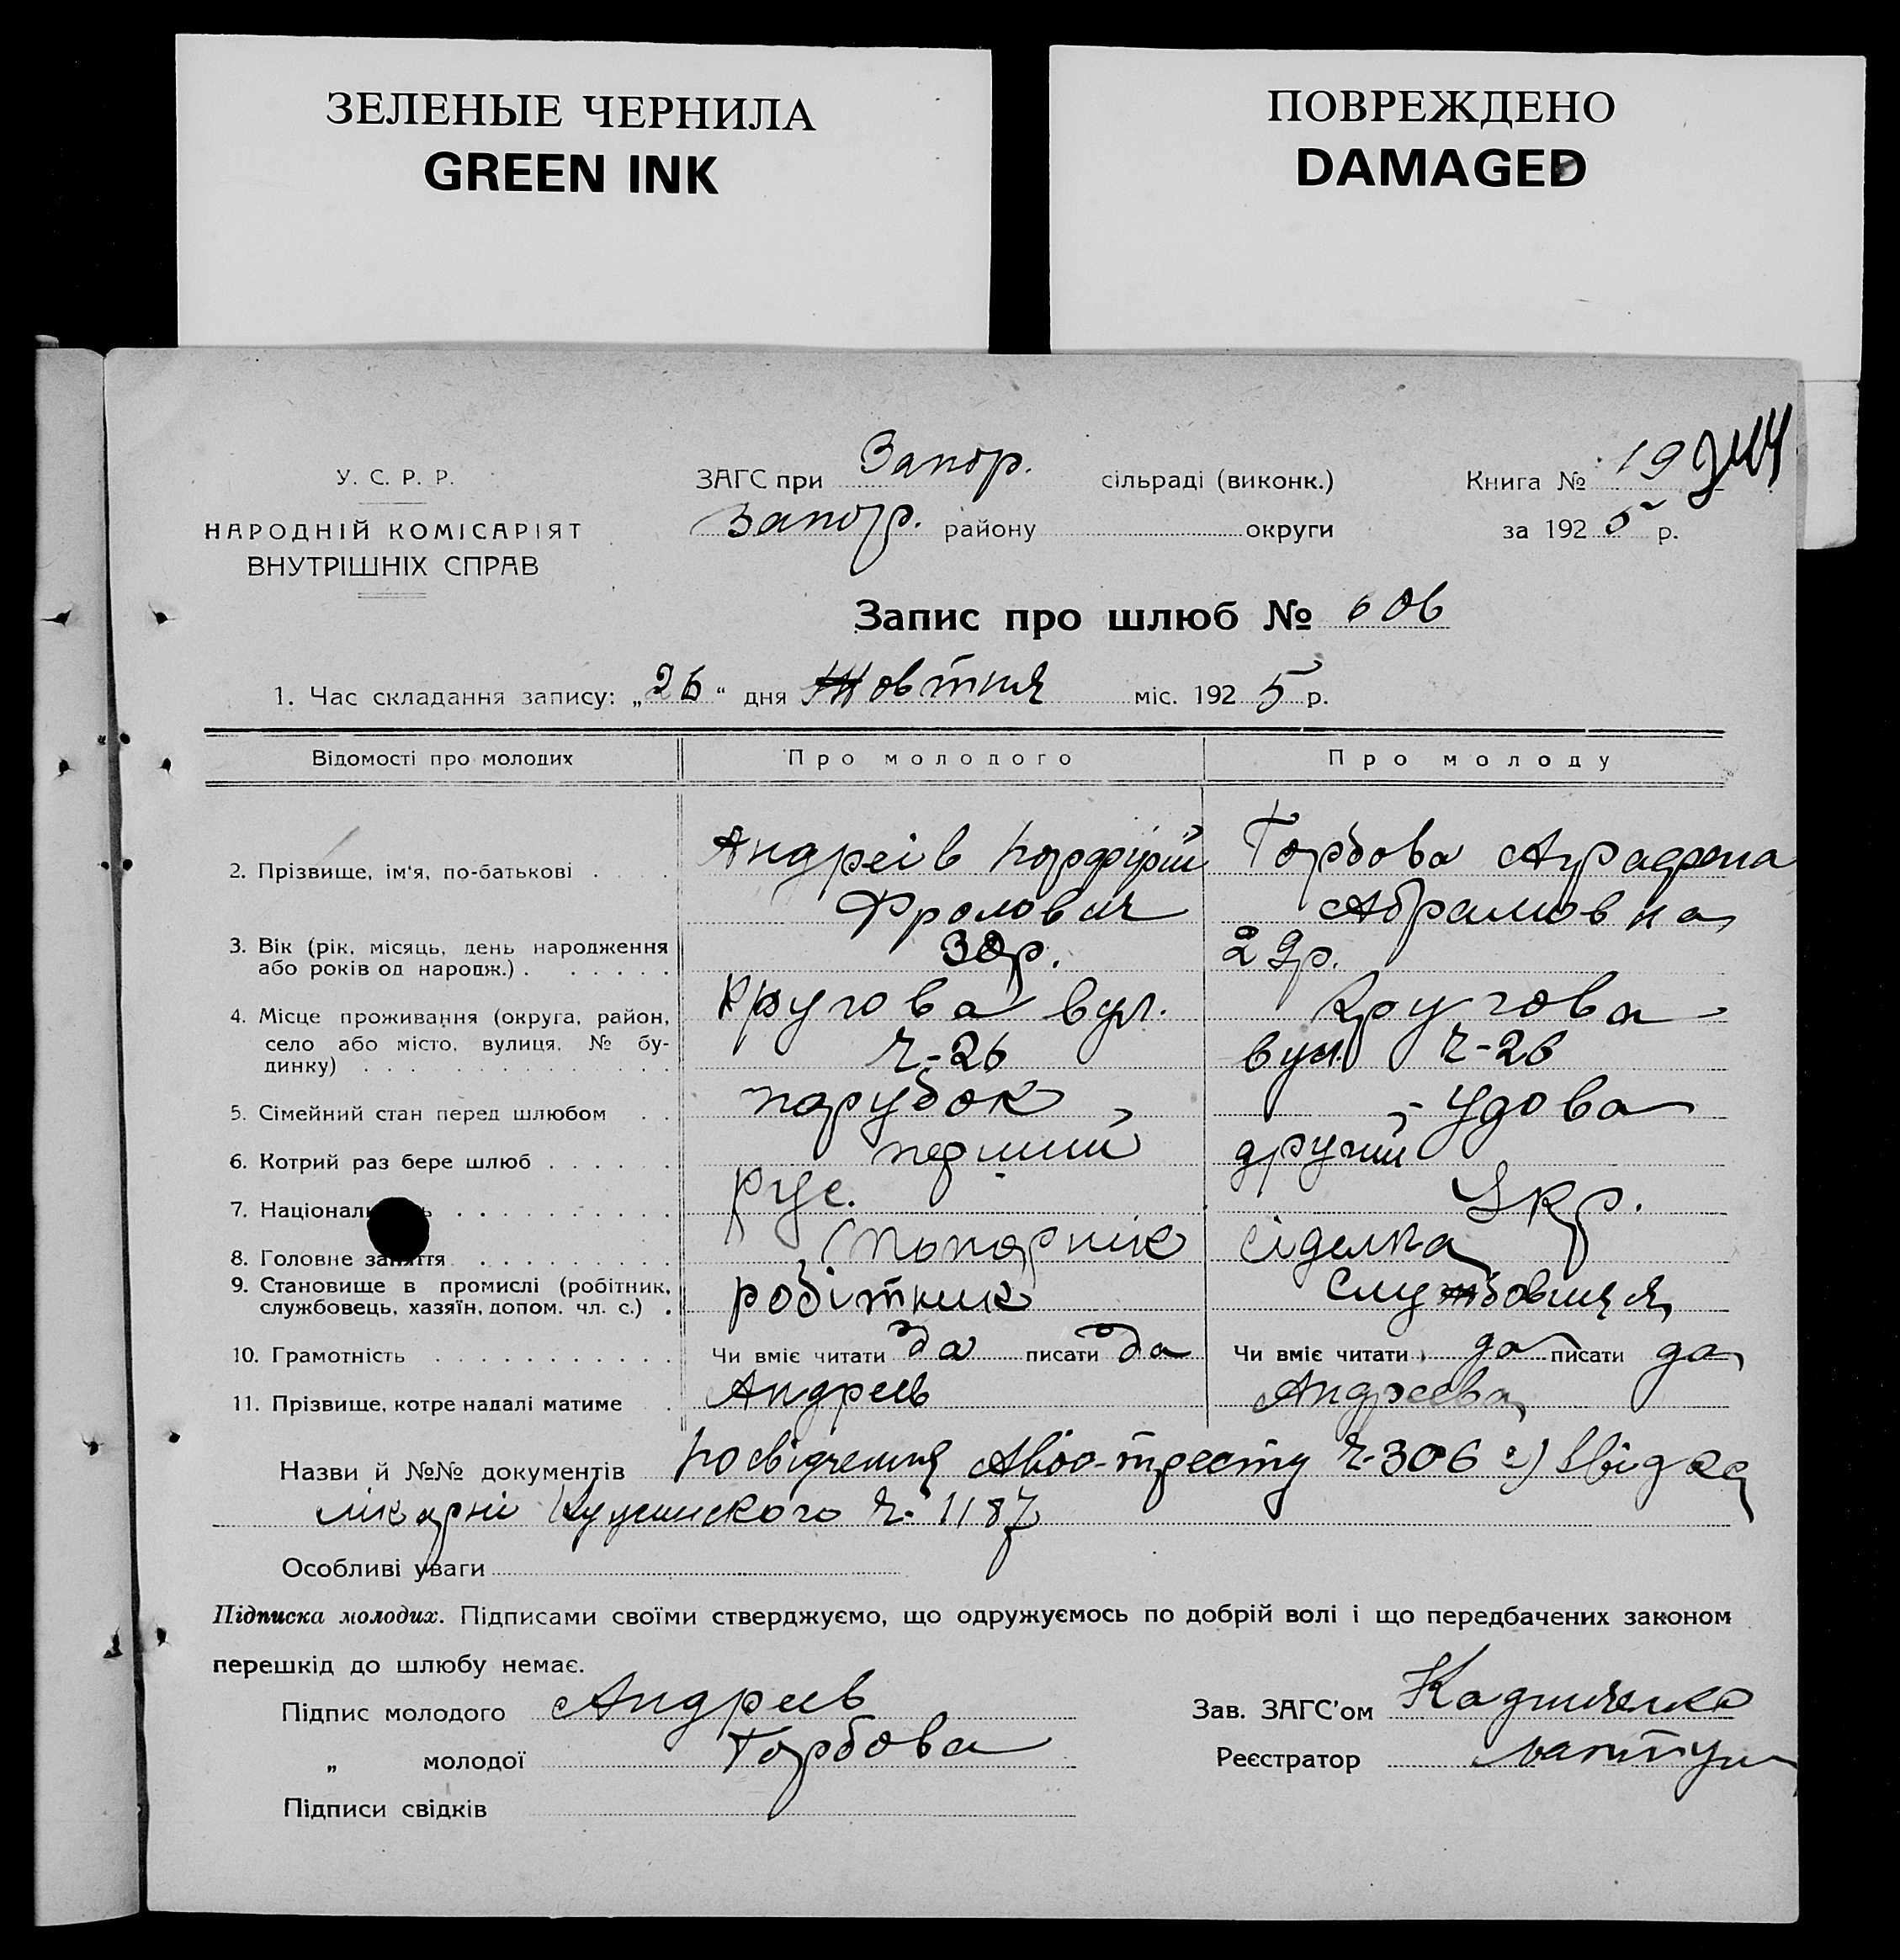 ЗЕЛЕНЫЕ ЧЕРНИЛА
GREEN INK
ПОВРЕЖДЕНО
DAMAGED
У. С. Р. Р.
НАРОДНІЙ КОМІСАРІЯТ
ВНУТРІШНІХ СПРАВ
ЗАГС при Запор. сільраді (виконк.)
Запор. району округи
Книга № 19
за 1925 р.
Запис про шлюб № 606
1. Час складання запису: „26“ дня Жовтня міс. 1925 р.
Відомості про молодих Про молодого Про молоду
2. Прізвище, ім'я, по-батькові Андреів Порфірій Горбова Аграфена
Фролович Абрамовна
3. Вік (рік, місяць, день народження
або років од народж.) 30р. 29р.
4. Місце проживання (округа, район, Кругова вул. Кругова
село або місто, вулиця, № бу-
динку) Ч-26 вул. Ч-26
5. Сімейний стан перед шлюбом парубок удова
6. Котрий раз бере шлюб перший другий
7. Національ ь рус. Укр.
8. Головне заняття сіделка
9. Становище в промислі (робітник,
службовець, хазяїн, допом. чл. с.) робітник Службовиця
10. Грамотність Чи вміє читати да писати да Чи вміє читати да писати да
11. Прізвище, котре надалі матиме Андреів Андреева
Назви й №№ документів Посвідчення Авіо-тресту Ч-306 2)
лікарні Ч. 1187
Особливі уваги
Підписка молодих. Підписами своїми стверджуємо, що одружуємось по добрій волі і що передбачених законом
перешкід до шлюбу немає.
Підпис молодого Андреев
Зав. ЗАГС'ом
„ молодої Горбова
Реєстратор
Підписи свідків